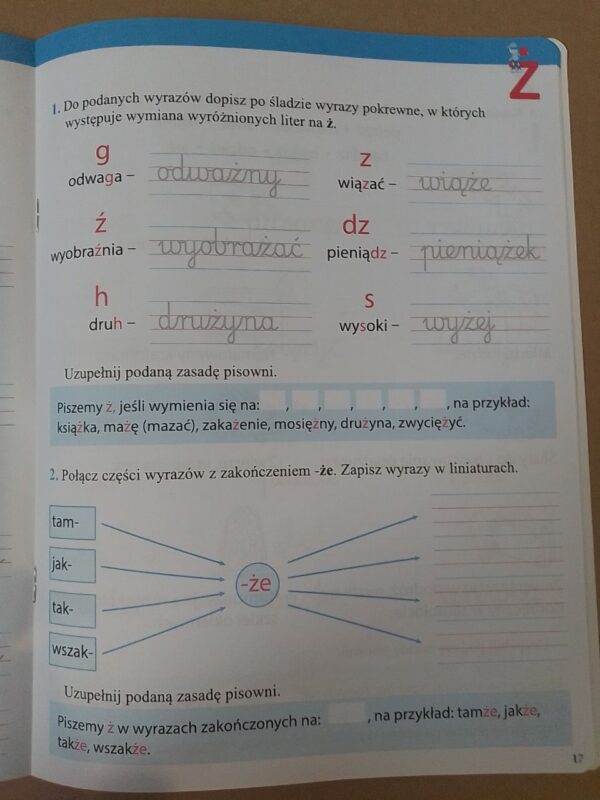 Ż
1. Do podanych wyrazów dopisz po śladzie wyrazy pokrewne, w których
występuje wymiana wyróżnionych liter na ż.
g
odwaga – odważny
z
wiązać – wiąże
ź
wyobraźnia – wyobrażać
dz
pieniądz – pieniążek
h
druh – drużyna
s
wysoki – wyżej
Uzupełnij podaną zasadę pisowni.
Piszemy ż, jeśli wymienia się na: , , , , , , na przykład:
książka, mażę (mazać), zakażenie, mosiężny, drużyna, zwyciężyć.
2. Połącz części wyrazów z zakończeniem -że. Zapisz wyrazy w liniaturach.
tam-
jak-
-że
tak-
wszak-
Uzupełnij podaną zasadę pisowni.
Piszemy ż w wyrazach zakończonych na: , na przykład: tamże, jakże,
także, wszakże.
17